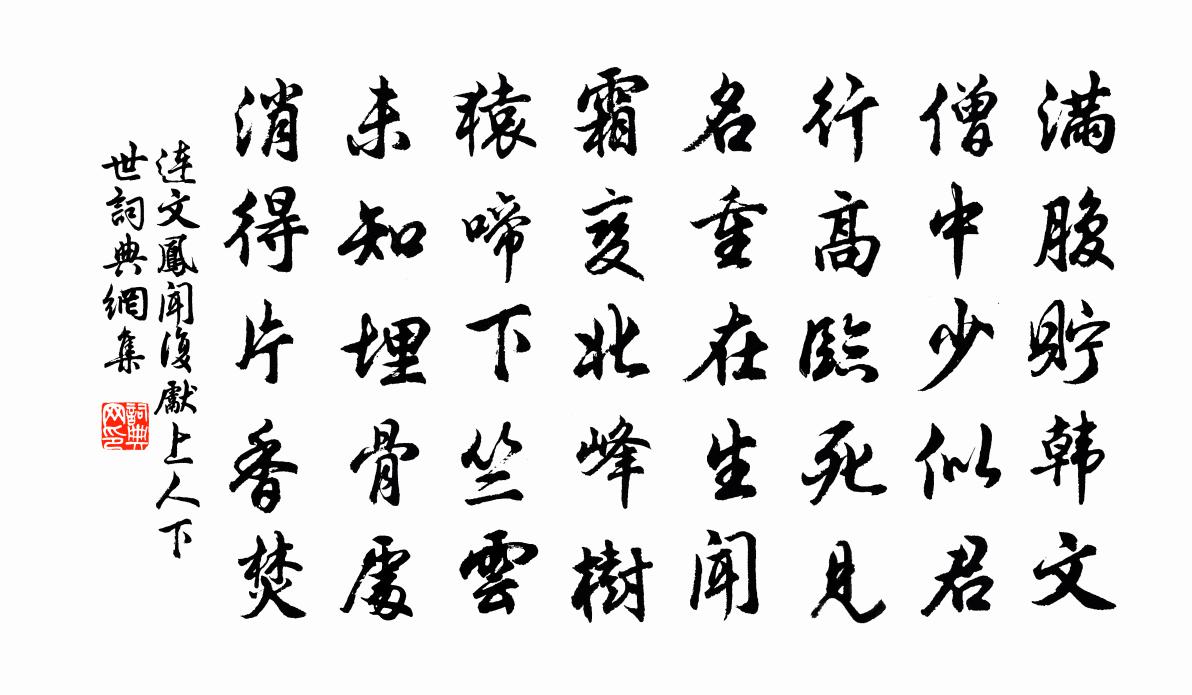 满腹贮韩文
僧中少似君
行高临死见
名重在生闻
霜变北峰樹
猿啼下竺雲
未知埋骨處
消得片香焚
连文鳳闻復獻上人下
世詞典網集
詞典网印